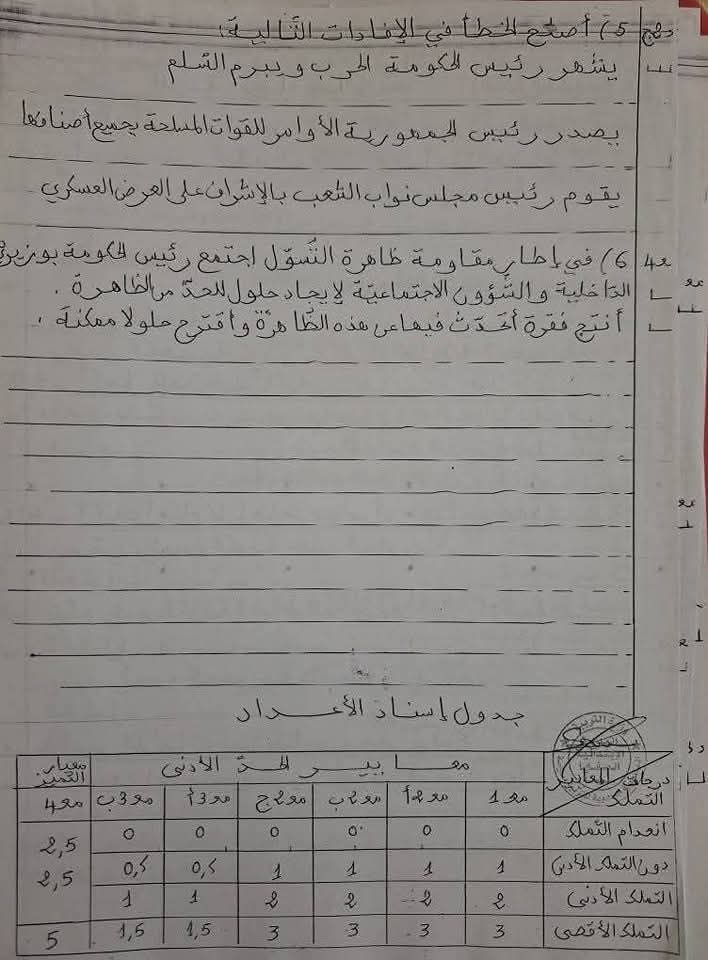 5) أصلح الخطأ في الإفادات التّالية:
يشهر رئيس الحكومة الحرب ويبرم السّلم
يصدر رئيس الجمهورية الأوامر للقوات المسلحة بجميع أصنافها
يقوم رئيس مجلس نواب الشعب بالإشراف على العرض العسكري
مع4 6) في إطار مقاومة ظاهرة التّسوّل اجتمع رئيس الحكومة بوزيري
الدّاخلية والشّؤون الاجتماعيّة لإيجاد حلول للحدّ من الظاهرة.
أنتج فقرة أتحدّث فيها عن هذه الظّاهرة وأقترح حلولا ممكنة.
جدول إسناد الأعداد
المعايير معايير الحدّ الأدنى معيار التميز
درجات التملك مع1 مع2أ مع2ب مع2ج مع3أ مع3ب مع4
انعدام التملك 0 0 0 0 0 0
دون التملك الأدنى 1 1 1 1 0,5 0,5 2,5
التملك الأدنى 2 2 2 2 1 1 2,5
التملك الأقصى 3 3 3 3 1,5 1,5 5